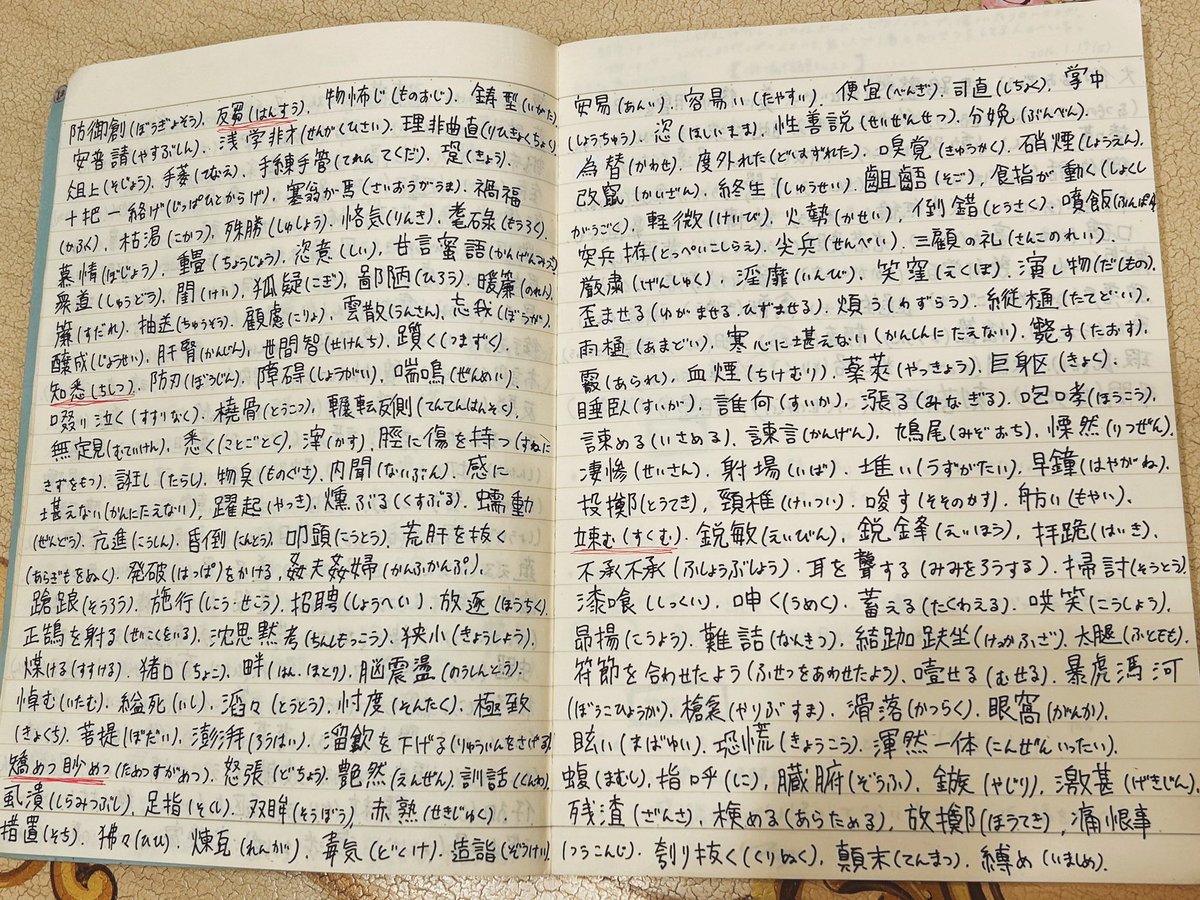 防御創(ぼうぎょそう). 反芻(はんすう). 物怖じ(ものおじ). 鋳型(いがた)
安普請(やすぶしん). 浅学非才(せんがくひさい). 理非曲直(りひきょくちょく)
俎上(そじょう). 手萎(てなえ). 手練手管(てれんてくだ). 跫(きょう).
十把一絡げ(じっぱひとからげ). 塞翁が馬(さいおうがうま). 禍福
(かふく). 枯渇(こかつ). 殊勝(しゅしょう). 悋気(りんき). 耄碌(もうろく).
慕情(ぼじょう). 重畳(ちょうじょう). 恣意(しい). 甘言蜜語(かんげんみつご)
衆道(しゅうどう). 閨(けい). 狐疑(こぎ). 鄙陋(ひろう). 暖簾(のれん)
簾(すだれ). 抽送(ちゅうそう). 顧慮(こりょ). 雲散(うんさん). 忘我(ぼうが).
醸成(じょうせい). 肝腎(かんじん). 世間智(せけんち). 躓く(つまずく).
知悉(ちしつ). 防刃(ぼうじん). 障碍(しょうがい). 喘鳴(ぜんめい).
啜り泣く(すすりなく). 橈骨(とうこつ). 輾転反側(てんてんはんそく).
無定見(むていけん). 悉く(ことごとく). 滓(かす). 脛に傷を持つ(すねに
きずをもつ). 誑し(たらし). 物臭(ものぐさ). 内聞(ないぶん). 感に
堪えない(かんにたえない), 躍起(やっき). 燻ぶる(くすぶる). 蠕動
(ぜんどう). 亢進(こうしん). 昏倒(こんとう). 叩頭(こうとう). 荒肝を抜く
(あらぎもをぬく). 発破(はっぱ)をかける, 姦夫姦婦(かんぷかんぷ).
蹌踉(そうろう). 施行(しこう・せこう). 招聘(しょうへい). 放逐(ほうちく)
正鵠を射る(せいこくをいる). 沈思黙考(ちんしもっこう). 狭小(きょうしょう).
煤ける(すすける). 猪口(ちょこ). 畔(はん. ほとり). 脳震盪(のうしんとう).
悼む(いたむ). 縊死(いし). 滔々(とうとう). 忖度(そんたく). 極致
(きょくち). 菩提(ぼだい). 澎湃(ろうはい). 溜飲を下げる(りゅういんをさげる)
矯めつ眇めつ(ためつすがめつ). 怒張(どちょう). 艶然(えんぜん). 訓話(くんわ)
虱潰(しらみつぶし). 足指(そくし). 双眸(そうぼう). 赤熟(せきじゅく).
措置(そち). 狒々(ひひ). 煉瓦(れんが). 毒気(どくけ). 造詣(ぞうけい)
安易(あんい). 容易い(たやすい). 便宜(べんぎ). 司直(しちょく). 掌中
(しょうちゅう). 恣(ほしいまま). 性善説(せいぜんせつ). 分娩(ぶんべん).
為替(かわせ). 度外れた(どはずれた). 嗅覚(きゅうかく). 硝煙(しょうえん).
改竄(かいざん). 終生(しゅうせい). 齟齬(そご), 食指が動く(しょくし
がうごく). 軽微(けいび). 火勢(かせい), 倒錯(とうさく). 噴飯(ふんぱん)
突兵拵(とっぺいこしらえ). 尖兵(せんぺい). 三顧の礼(さんこのれい).
厳粛(げんしゅく). 淫靡(いんび). 笑窪(えくぼ). 演し物(だしもの).
歪ませる(ゆがませる.ひずませる). 煩う(わずらう). 縦樋(たてどい).
雨樋(あまどい). 寒心に堪えない(かんしんにたえない). 斃す(たおす)
霰(あられ), 血煙(ちけむり). 薬莢(やっきょう). 巨身躯(きょく).
睡臥(すいが). 誰何(すいか). 漲る(みなぎる). 咆哮(ほうこう).
諌める(いさめる). 諫言(かんげん). 鳩尾(みぞおち). 慄然(りつぜん).
凄惨(せいさん). 射場(いば). 堆い(うずがたい). 早鐘(はやがね).
投擲(とうてき), 頸椎(けいつい). 唆す(そそのかす). 舫い(もやい).
竦む(すくむ). 鋭敏(えいびん), 鋭鋒(えいほう), 拝跪(はいき).
不承不承(ふしょうぶしょう). 耳を聾する(みみをろうする). 掃討(そうとう).
漆喰(しっくい). 呻く(うめく). 蓄える(たくわえる). 哄笑(こうしょう).
昂揚(こうよう). 難詰(なんきつ). 結跏趺坐(けっかふざ). 太腿(ふともも).
符節を合わせたよう(ふせつをあわせたよう). 噎せる(むせる). 暴虎馮河
(ぼうこひょうが). 槍衾(やりぶすま). 滑落(かつらく). 眼窩(がんか).
眩い(まばゆい). 恐慌(きょうこう). 渾然一体(こんぜんいったい).
蝮(まむし), 指呼(しこ). 臓腑(ぞうふ). 鏃(やじり), 激甚(げきじん).
残渣(ざんさ). 検める(あらためる). 放擲(ほうてき), 痛恨事
(つうこんじ). 刳り抜く(くりぬく), 顛末(てんまつ). 縛め(いましめ).